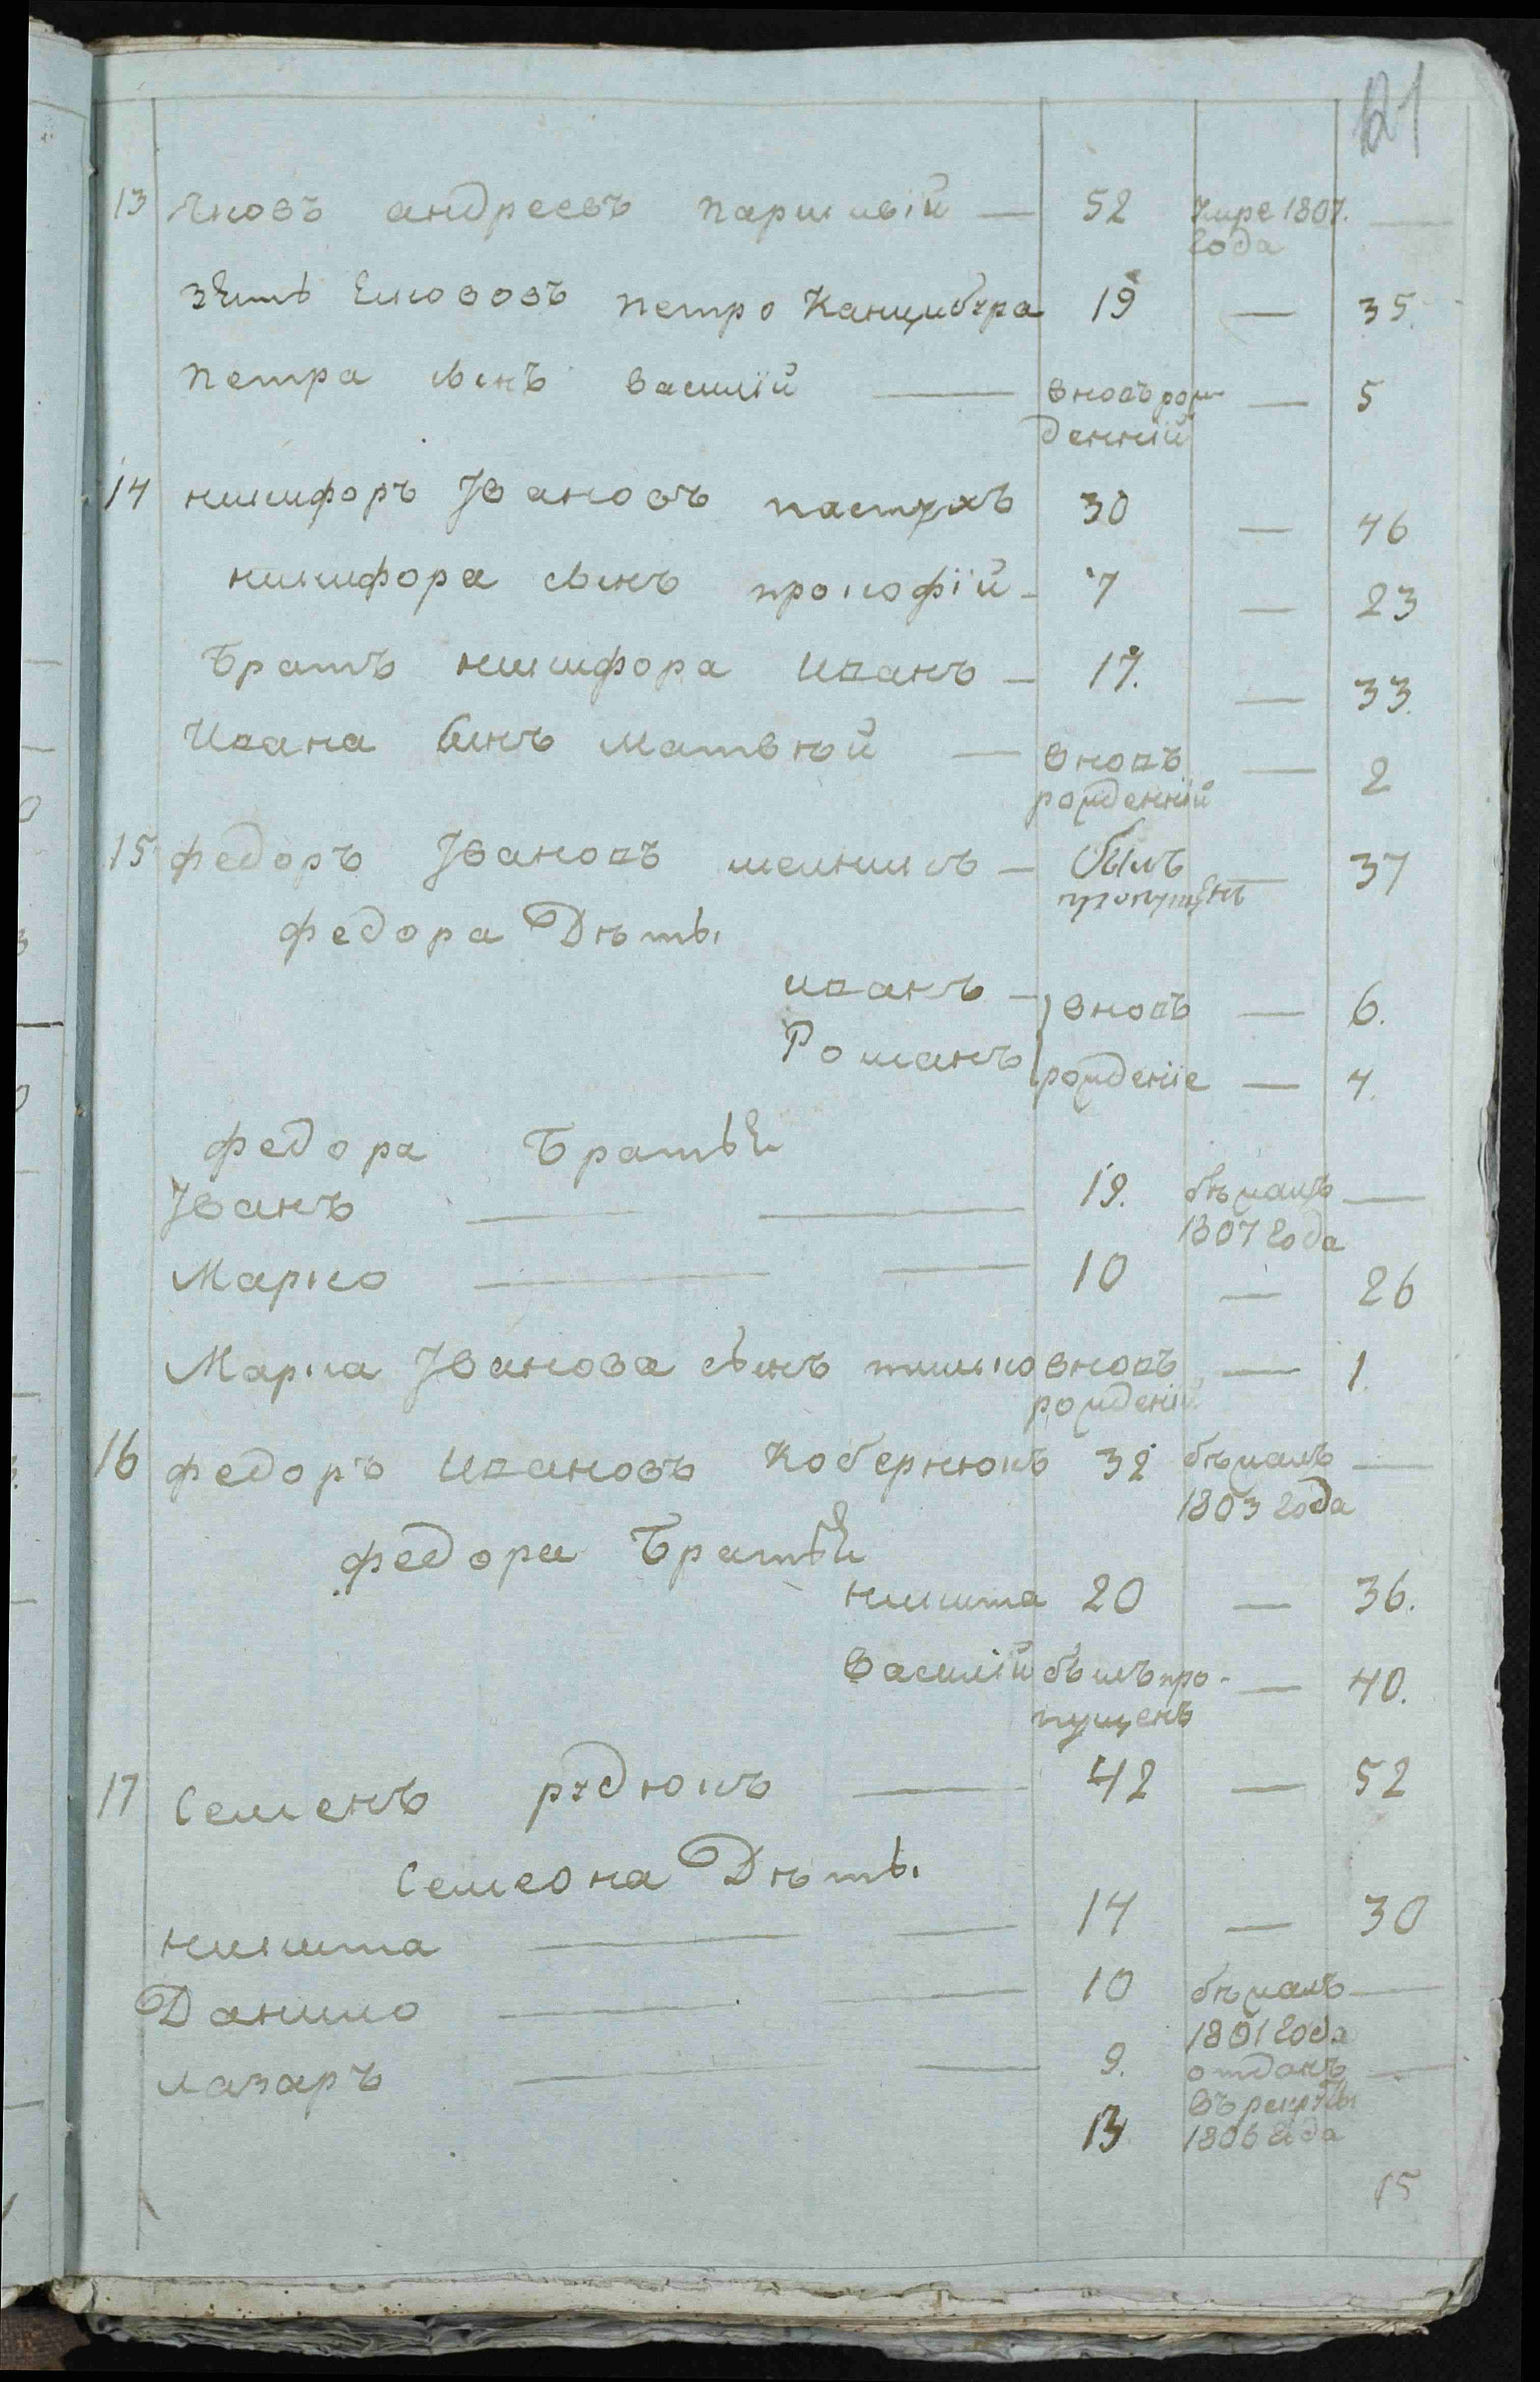 121
13 Яковъ андреевъ паршивій — 52 Умре 1807. —
года
зять Якововъ петро Канцибура 19 — 35.
петра сынъ василій — вновь рож — 5
денній
14 никифоръ Јвановъ пастухъ 30 — 46
никифора сынъ прокофій — 7 — 23
братъ никифора иванъ — 17. — 33.
ивана сынъ матвѣй — вновь — 2
рожденній
15 федоръ Јвановъ мелникъ — былъ — 37
пропущенъ
федора Дѣты
иванъ — вновь — 6.
Романъ рожденіе — 4.
федора братья
Јванъ — — 19. бѣжалъ —
1807 года
Марко — — 10 — 26
Марка Јванова сынъ тимко вновь — 1
рожденій
16 федоръ ивановъ Кобернюкъ 32 бѣжалъ —
1803 года
федора братья
никита 20 — 36.
василій былъ про- — 40.
пущенъ
17 Семенъ рудюкъ — 42 — 52
Семеона Дѣты
никита — — 14 — 30
Данило — — 10 бѣжалъ —
1801 года
лазаръ — — 9. отданъ —
въ рекруты
13 1806 года
15